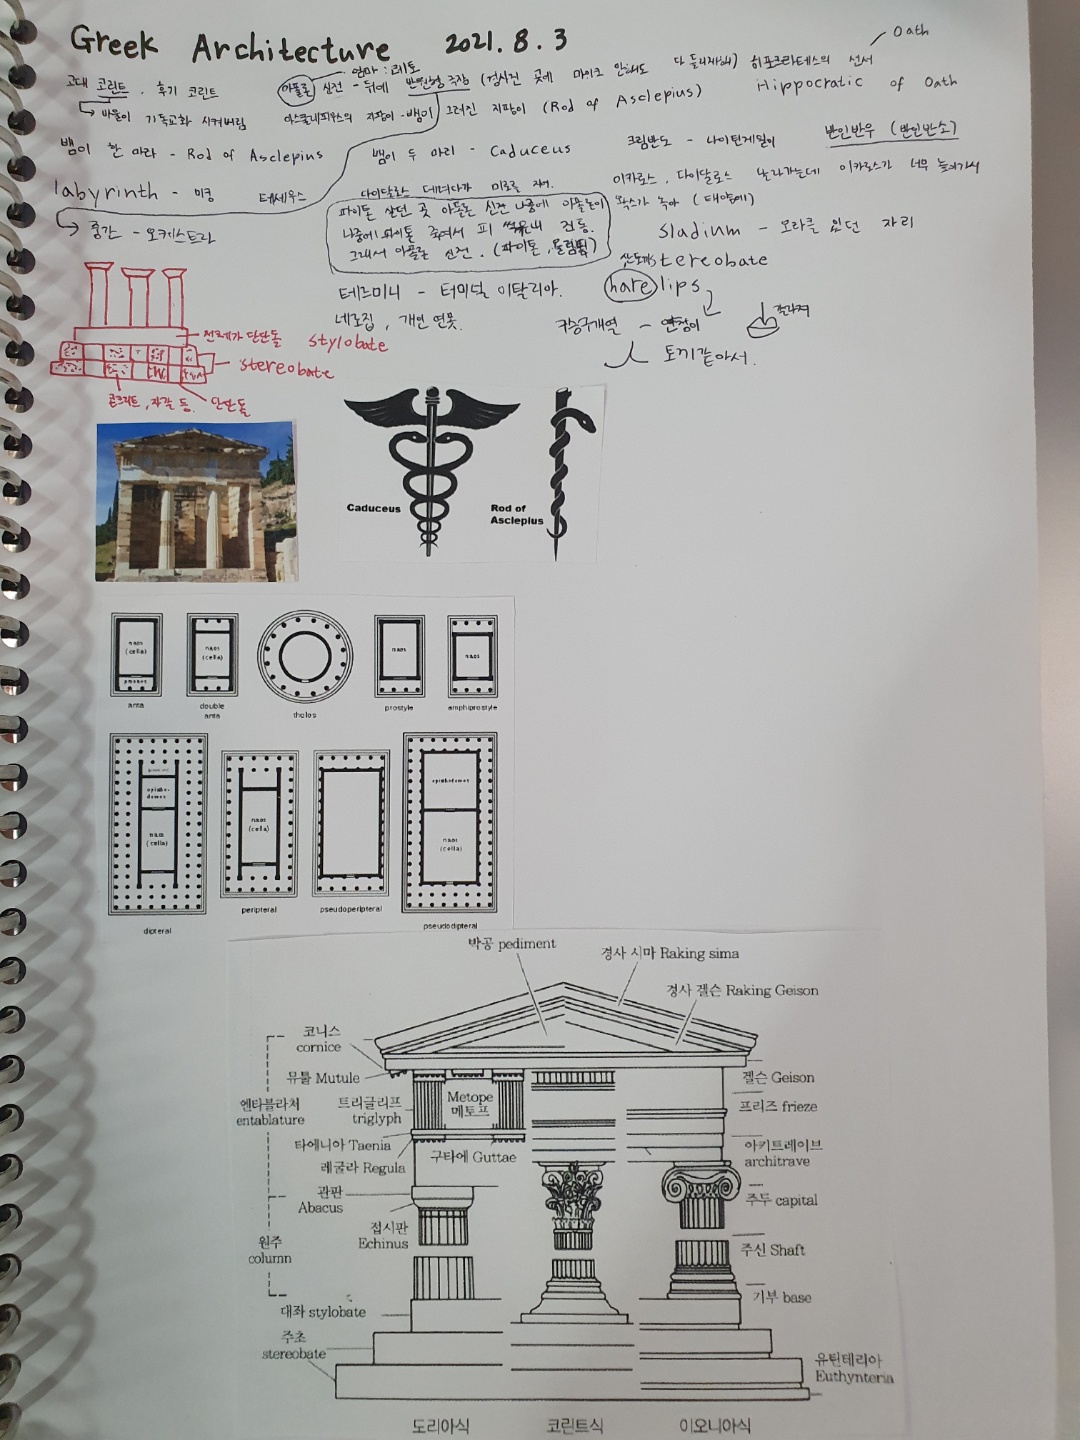 Greek Architecture 2021. 8. 3
Oath
엄마 : 레토
고대 코린트, 후기 코린트
아폴론 신전 - 뒤에 반원형 극장 (정식전 곳에 마이크 안해도 다 들리게해)
히포크라테스의 선서
Hippocratic of Oath
바울이 기독교화 시켜버림
아스클레피우스의 지팡이 - 뱀이 그려진 지팡이 (Rod of Asclepius)
뱀이 한 마리 - Rod of Asclepius
뱀이 두 마리 - Caduceus
크림반도 - 나이팅게일이
반인반우 (반인반소)
labyrinth - 미궁 테세우스
다이달로스 데려다가 미로를 지어.
이카로스, 다이달로스 날라가는데 이카로스가 너무 높이가서
왁스가 녹아 (태양에)
중간 - 오케스트라
파이톤 살던 곳 아폴론 신전 나중에 아폴론이
나중에 파이톤 죽여서 피 전통.
그래서 아폴론 신전. (파이톤,
sladium - 모라클 있던 자리
stereobate
테르미니 - 터미널 이탈리아.
harelips
네로집, 개인 연못.
구순구개열 - 언청이
갈라져
토끼같아서.
전체가 단단돌 stylobate
stereobate
콘크리트, 자갈 등. 단단돌
Caduceus
Rod of
Asclepius
naos
(cella)
pronaos
anta
naos
(cella)
double
anta
tholos
naos
prostyle
naos
amphiprostyle
opistho-
domos
naos
(cella)
dipteral
naos
(cella)
peripteral
pseudoperipteral
opisthodomos
naos
(cella)
pseudodipteral
박공 pediment
경사 시마 Raking sima
경사 겔슨 Raking Geison
코니스
cornice
뮤툴 Mutule
엔타블라처
entablature
트리글리프
triglyph
Metope
메토프
타에니아 Taenia
레굴라 Regula
구타에 Guttae
겔슨 Geison
프리즈 frieze
아키트레이브
architrave
관판
Abacus
접시판
Echinus
주두 capital
원주
column
주신 Shaft
기부 base
대좌 stylobate
주초
stereobate
유틴테리아
Euthynteria
도리아식 코린트식 이오니아식